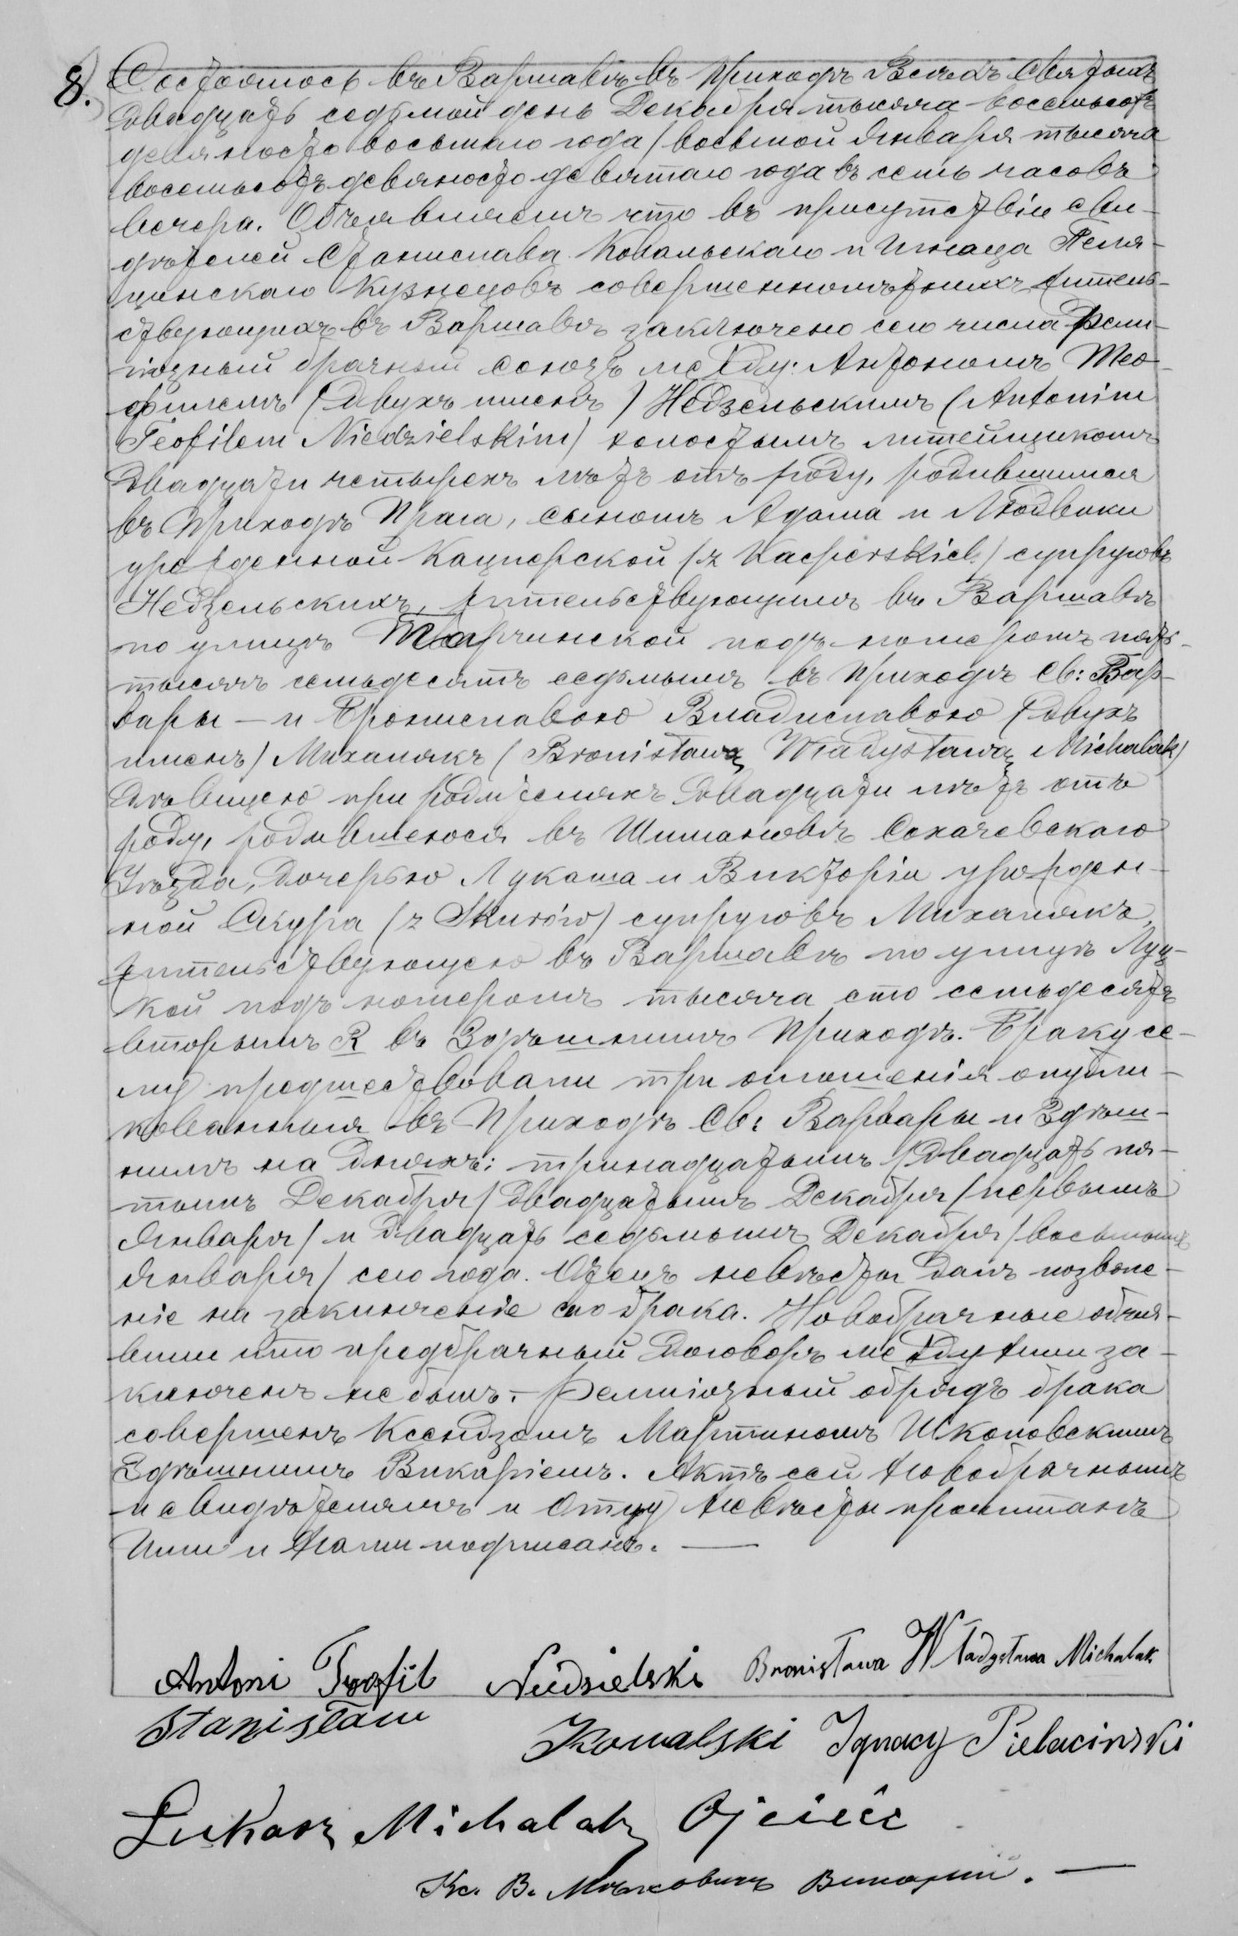 8.) Состоялось въ Варшавѣ въ Приходѣ Всѣхъ Святыхъ
двадцать седьмой день Декабря тысяча восемьсотъ
девяносто восьмаго года / восьмой Января тысяча
восемьсотъ девяносто девятаго года въ семь часовъ
вечера. Объявляемъ что въ присутствіи сви-
дѣтелей Станислава Ковальскаго и Игнаца Пеля-
цинскаго Кузнецовъ совершеннолѣтнихъ житель-
ствующихъ въ Варшавѣ заключено сего числа Рели-
гіозный брачный союзъ между: Антономъ Тео-
филемъ (двухъ именъ) Недзельскимъ (Antonim
Teofilem Niedzielskim) холостымъ литейщикомъ
двадцати четырехъ лѣтъ отъ роду, родившимся
въ Приходѣ Прага, сыномъ Адама и Людвики
урожденной Кацперской (z Kacperskich) супруговъ
Недзельскихъ, жительствующимъ въ Варшавѣ
по улицѣ Тарчинской подъ номеромъ пять
тысячъ семьдесятъ седьмымъ въ Приходѣ Св: Вар-
вары — и Брониславою Владиславою (двухъ
именъ) Михалякъ (Bronisławą Władysławą Michalak)
дѣвицею при родителяхъ двадцати лѣтъ отъ
роду, родившеюся въ Шимановѣ Сохачевскаго
Уѣзда, дочерью Лукаша и Викторіи урожден-
ной Скура (z Skurów) супруговъ Михалякъ,
жительствующею въ Варшавѣ по улицѣ Луц-
кой подъ номеромъ тысяча сто семьдесятъ
вторымъ R въ Здѣшнимъ Приходѣ. Браку се-
му предшествовали три оглашенія опубли-
кованныя въ Приходѣ Св: Варвары и Здѣш-
нимъ на дняхъ: тринадцатымъ / двадцать пя-
тымъ Декабря / двадцатымъ Декабря / первымъ
Января / и двадцать седьмымъ Декабря / восьмымъ
Января / сего года. Отецъ невѣсты далъ позволе-
ніе на заключеніе сего брака. Новобрачные объя-
вили что предбрачный договоръ между ними за-
ключенъ не былъ. — Религіозный обрядъ брака
совершенъ Ксендзомъ Мартиномъ Шкоповскимъ
Здѣшнимъ Викаріемъ. Актъ сей Новобрачнымъ
и свидѣтелямъ и Отцу Невѣсты прочитанъ
Ими и Нами подписанъ. —
Antoni Teofil Niedzielski Bronisława Władysława Michalak
Stanisław Kowalski Ignacy Pielaciński
Łukasz Michalak Ojciec
Кс. В. Викарій. —